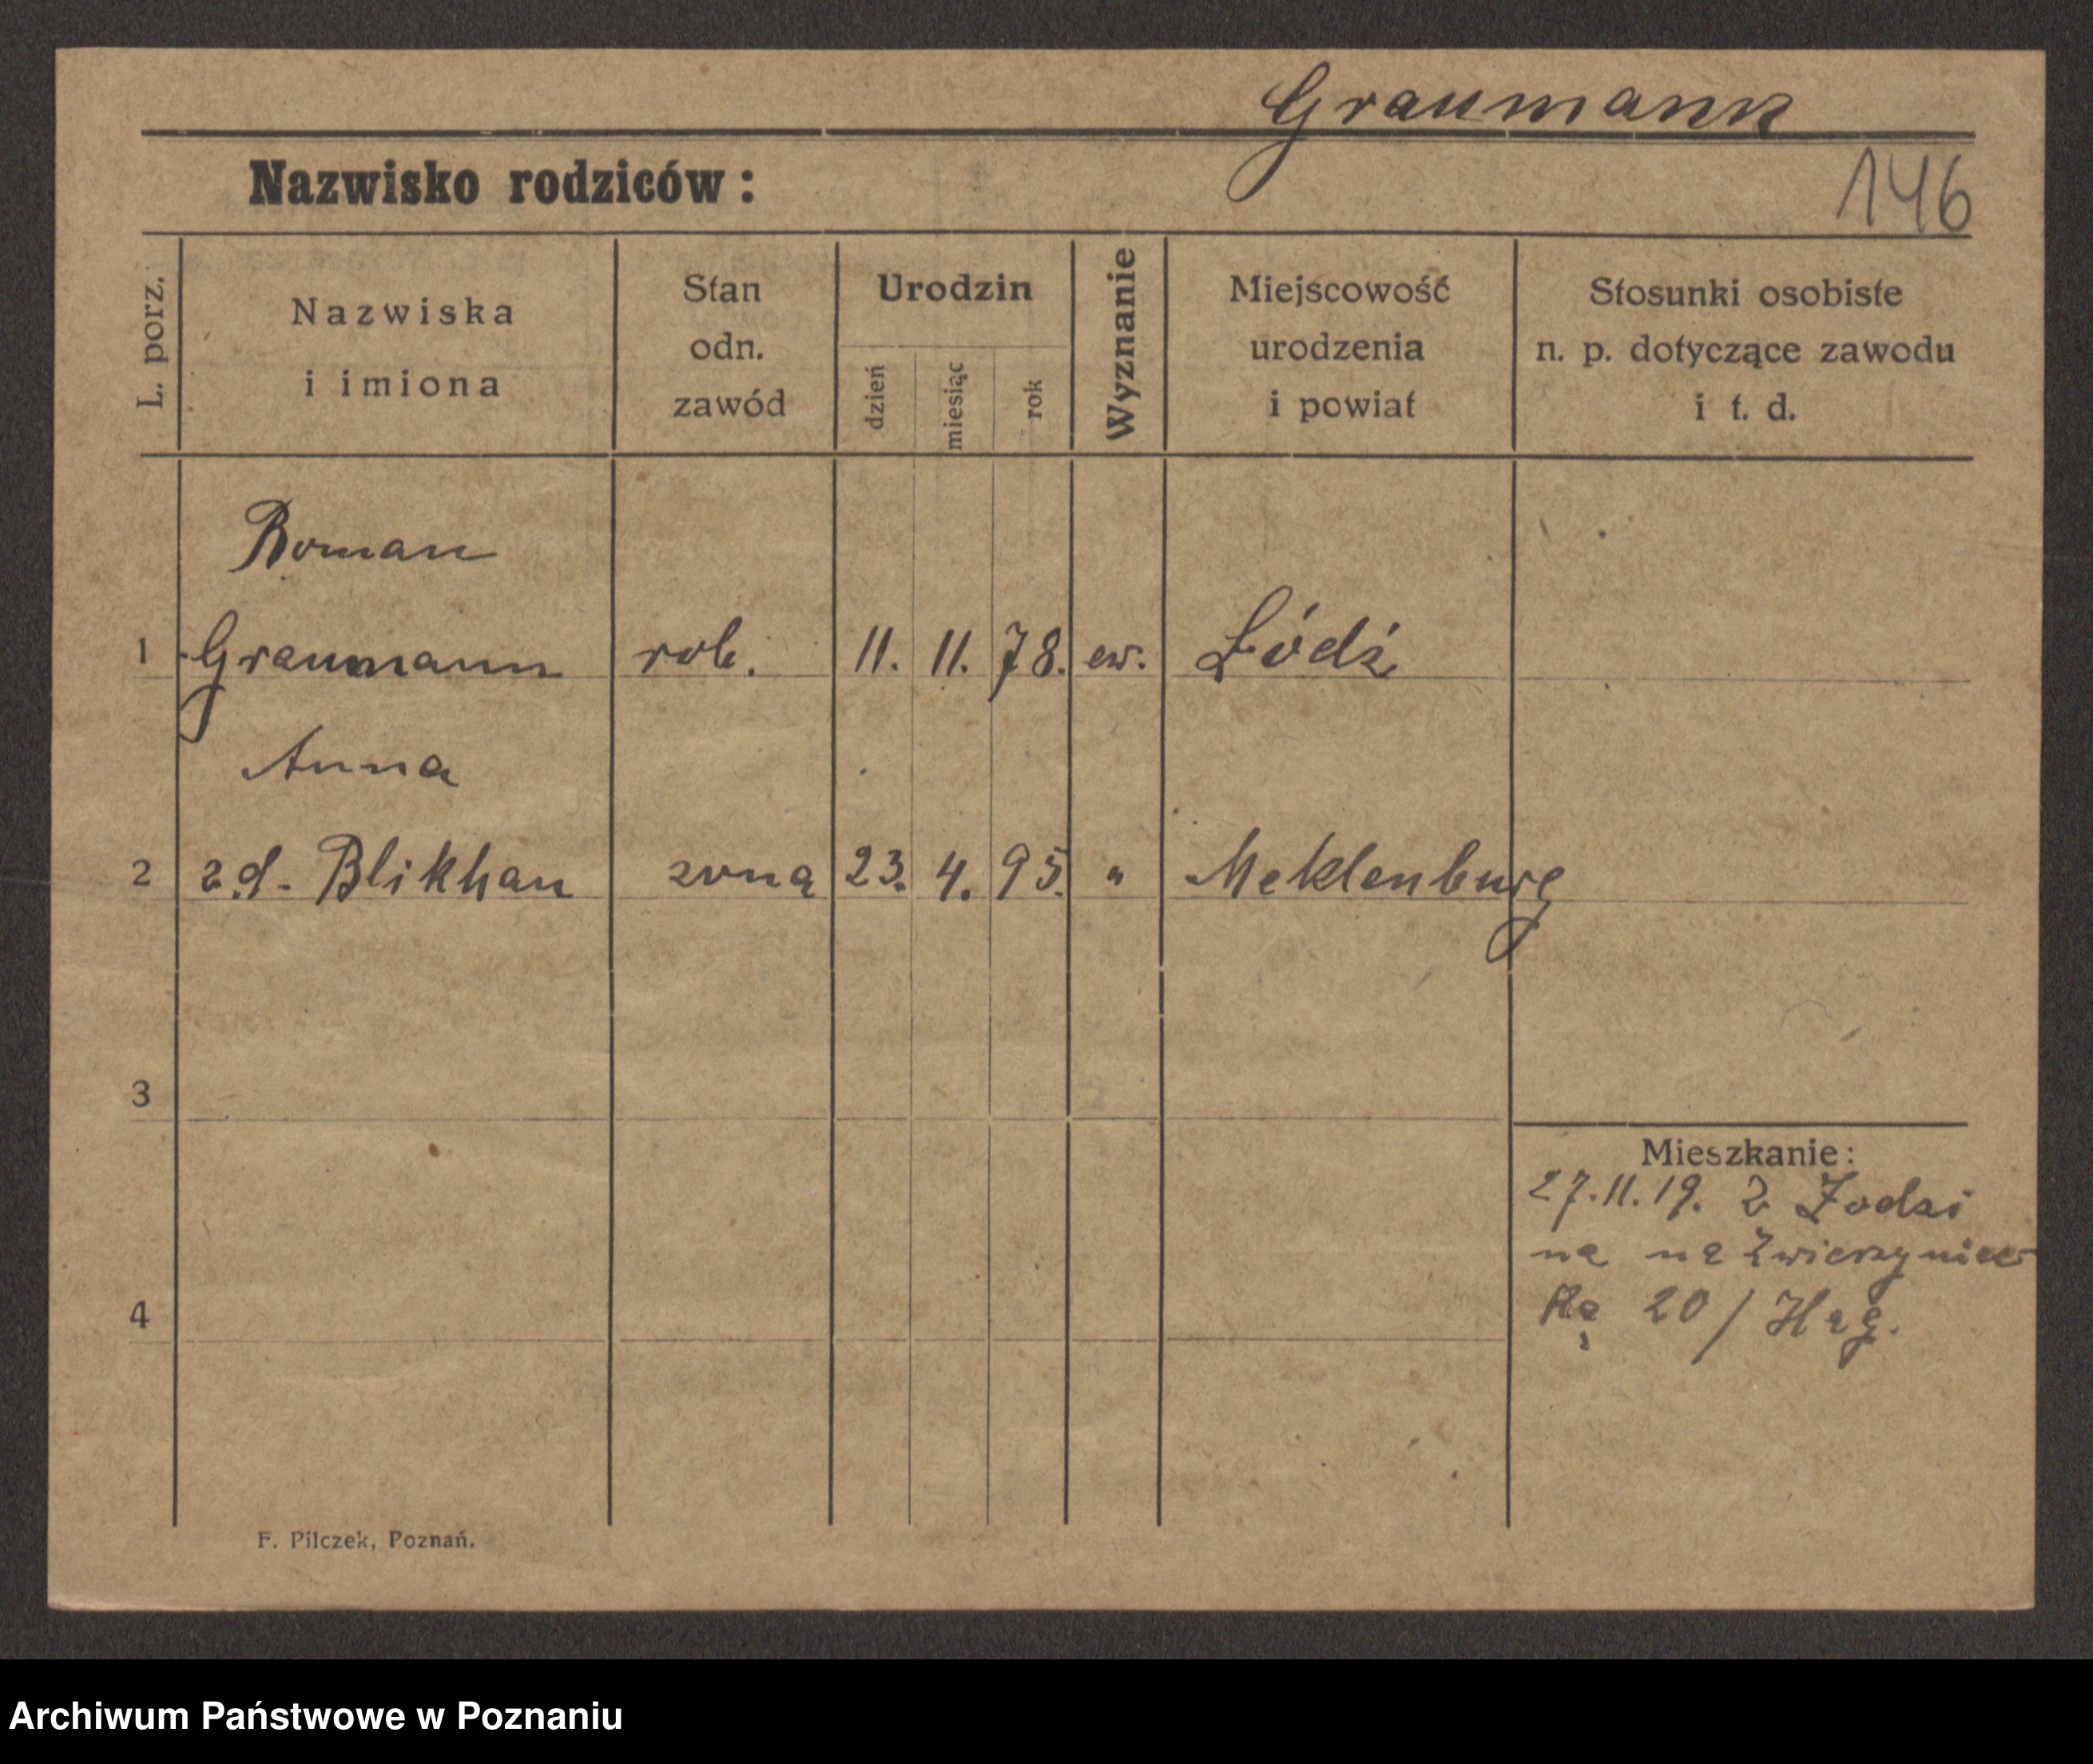 Graumann
Nazwisko rodziców:
146
L. porz.
Nazwiska
i imiona
Stan
odn.
zawód
Urodzin
dzień
miesiąc
rok
Wyznanie
Miejscowość
urodzenia
i powiat
Stosunki osobiste
n. p. dotyczące zawodu
i t. d.
Roman
1 Graumann rob. 11. 11. 78. ew. Łódź
Anna
2 z d. Blikhan zona 23. 4. 95. " Meklenburg
3
Mieszkanie:
27.11.19. z Łodzi
na na Zwierzyniec
ką 20 /
4
F. Pilczek, Poznań.
Archiwum Państwowe w Poznaniu